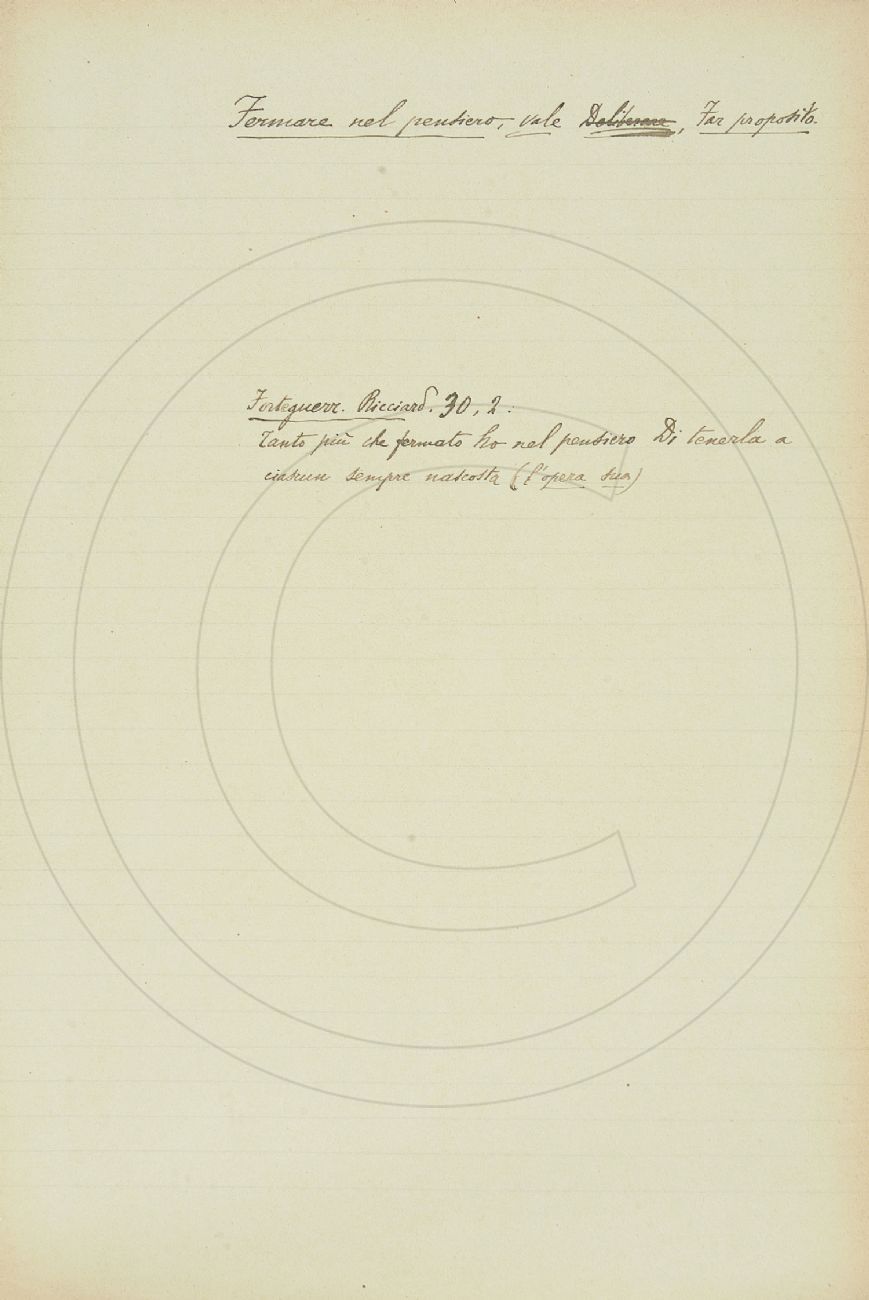 Fermare nel pensiero, vale Deliberare, Far proposito.
Forteguerr. Ricciard. 30, 2:
Tanto più che fermato ho nel pensiero Di tenerla a
ciascun sempre nascosta (l'opera sua)